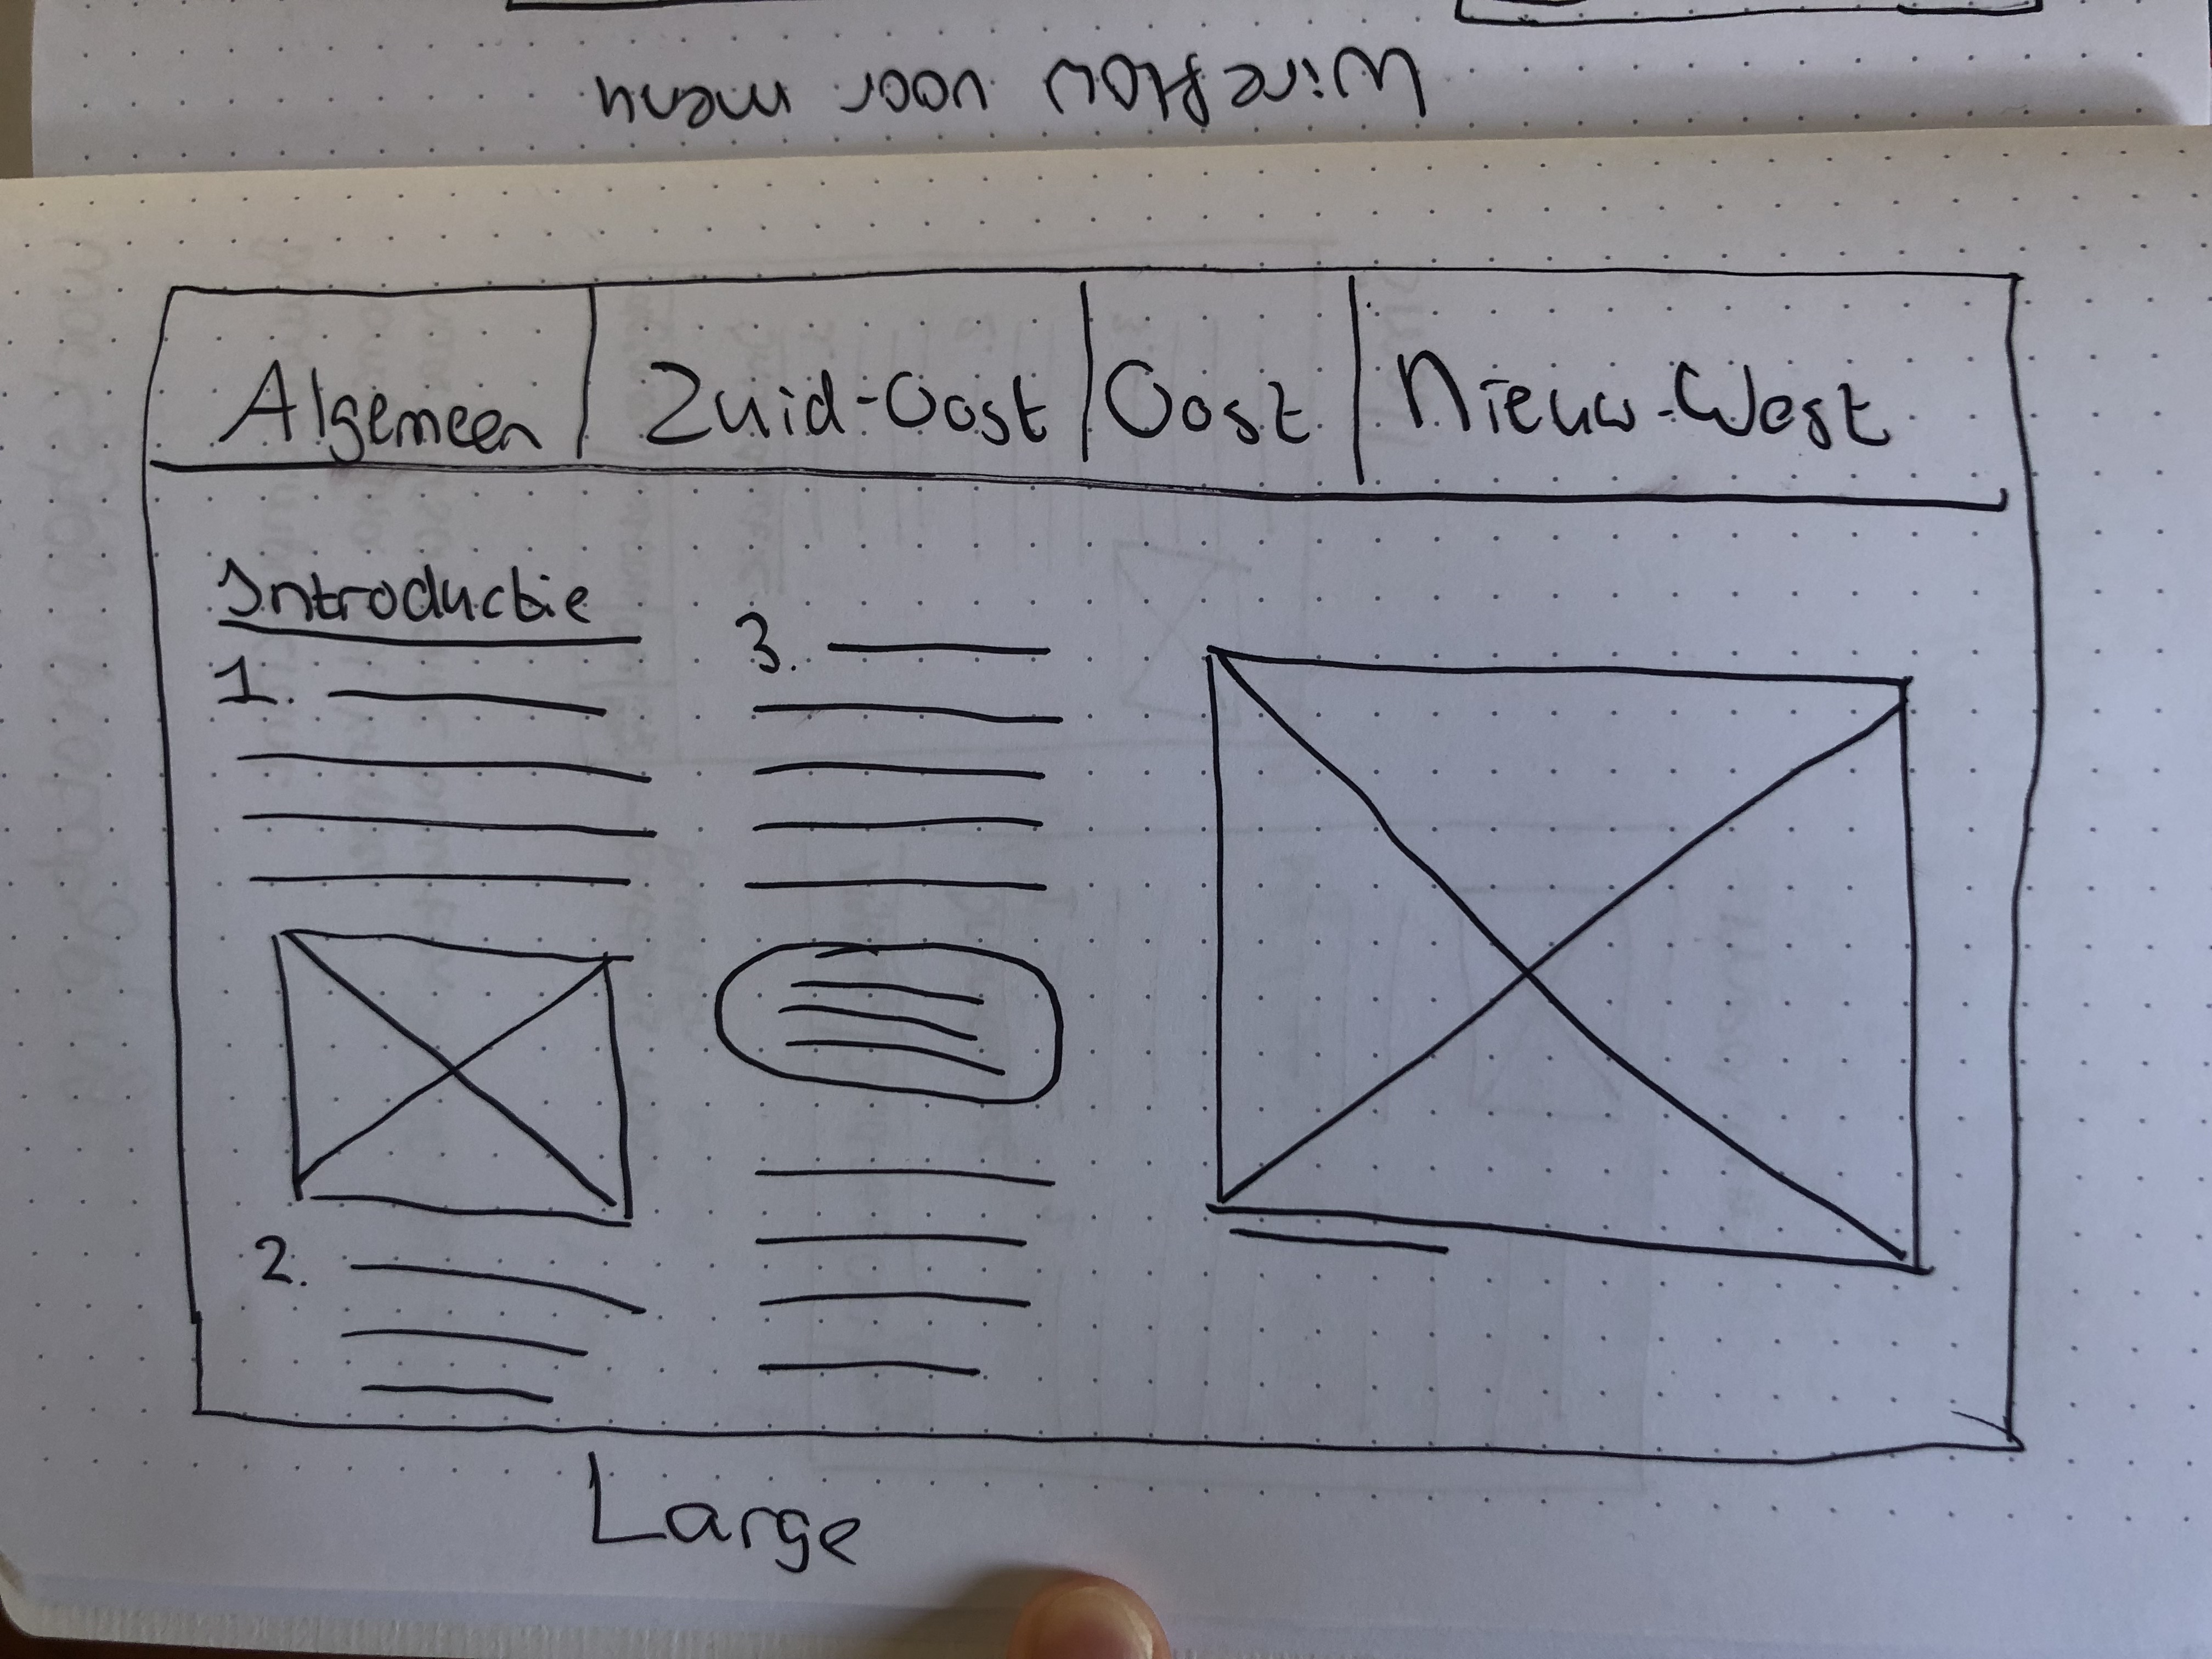 Wireflow voor menu
Algemeen Zuid-Oost Oost Nieuw-West
Introductie
1.
2.
3.
Large